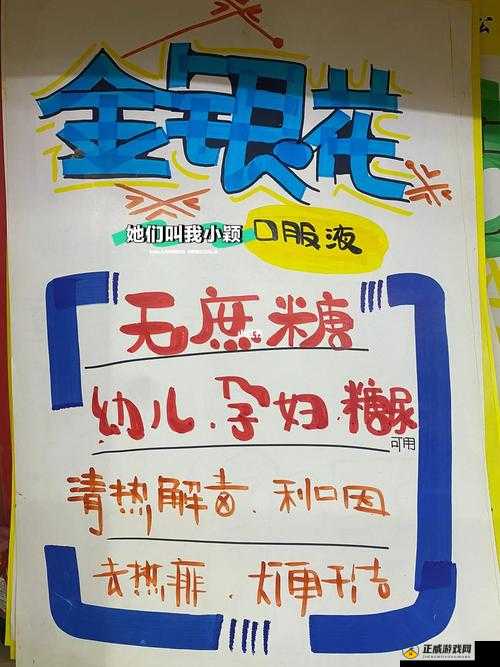 金银花
她们叫我小颖
口服液
无蔗糖
幼儿.孕妇.糖尿
可用
清热解毒.利口因
去热痱.大便干洁
正威游戏网